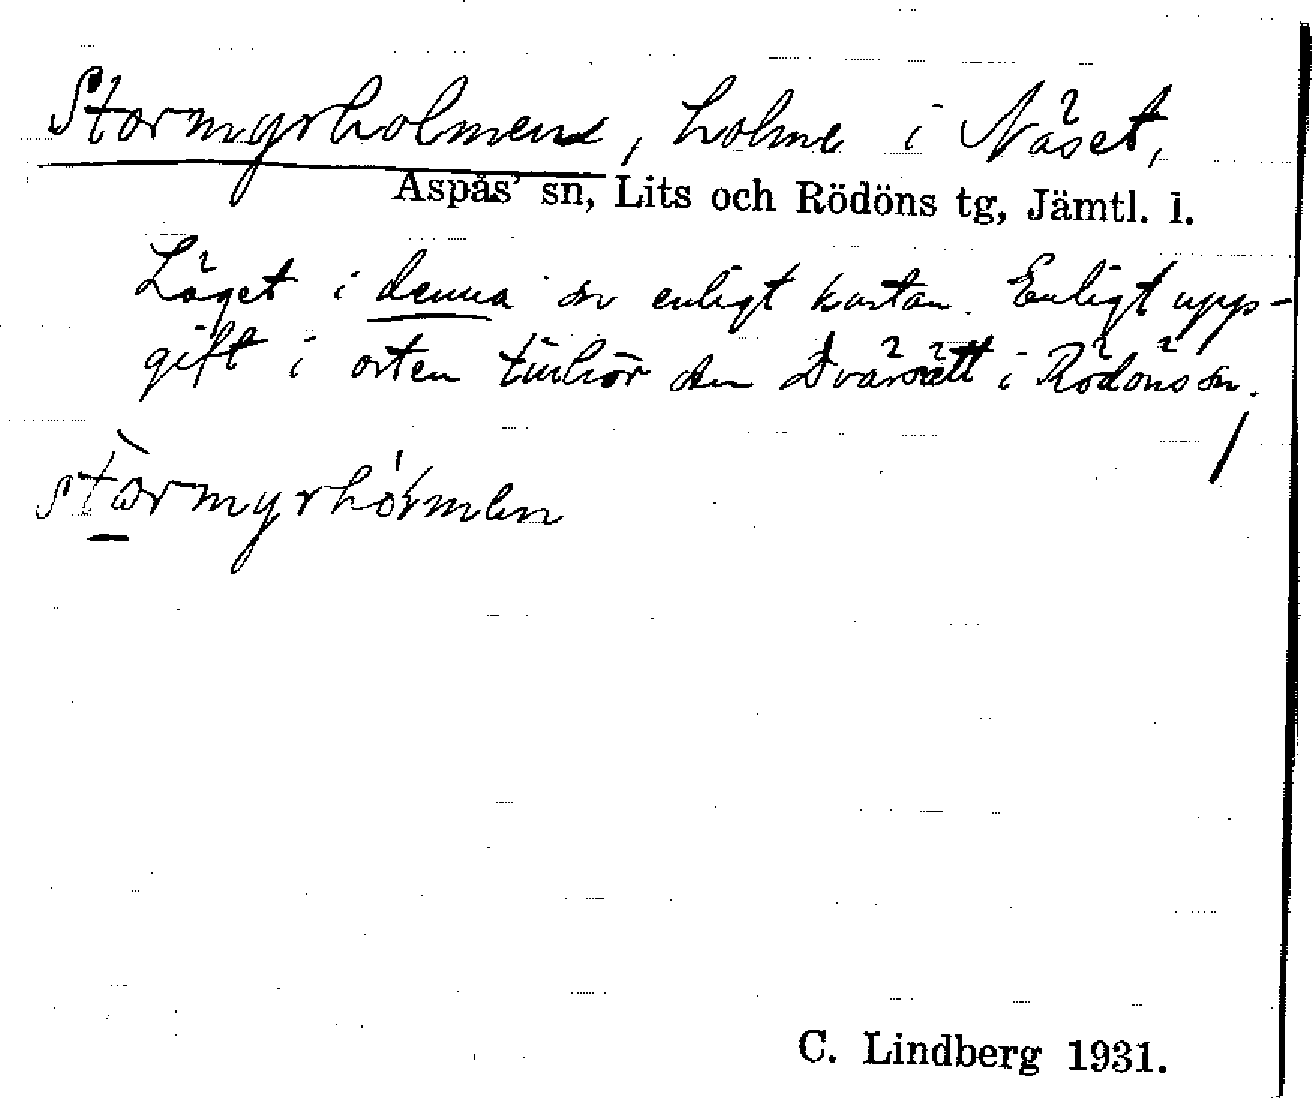 Stormyrholmen, holme i Näset,
Aspås' sn, Lits och Rödöns tg, Jämtl. l.
Läget i denna sn enligt kartan. Enligt upp-
gift i orten tillhör den Dvärsätt i Rödöns sn.
C. Lindberg 1931.